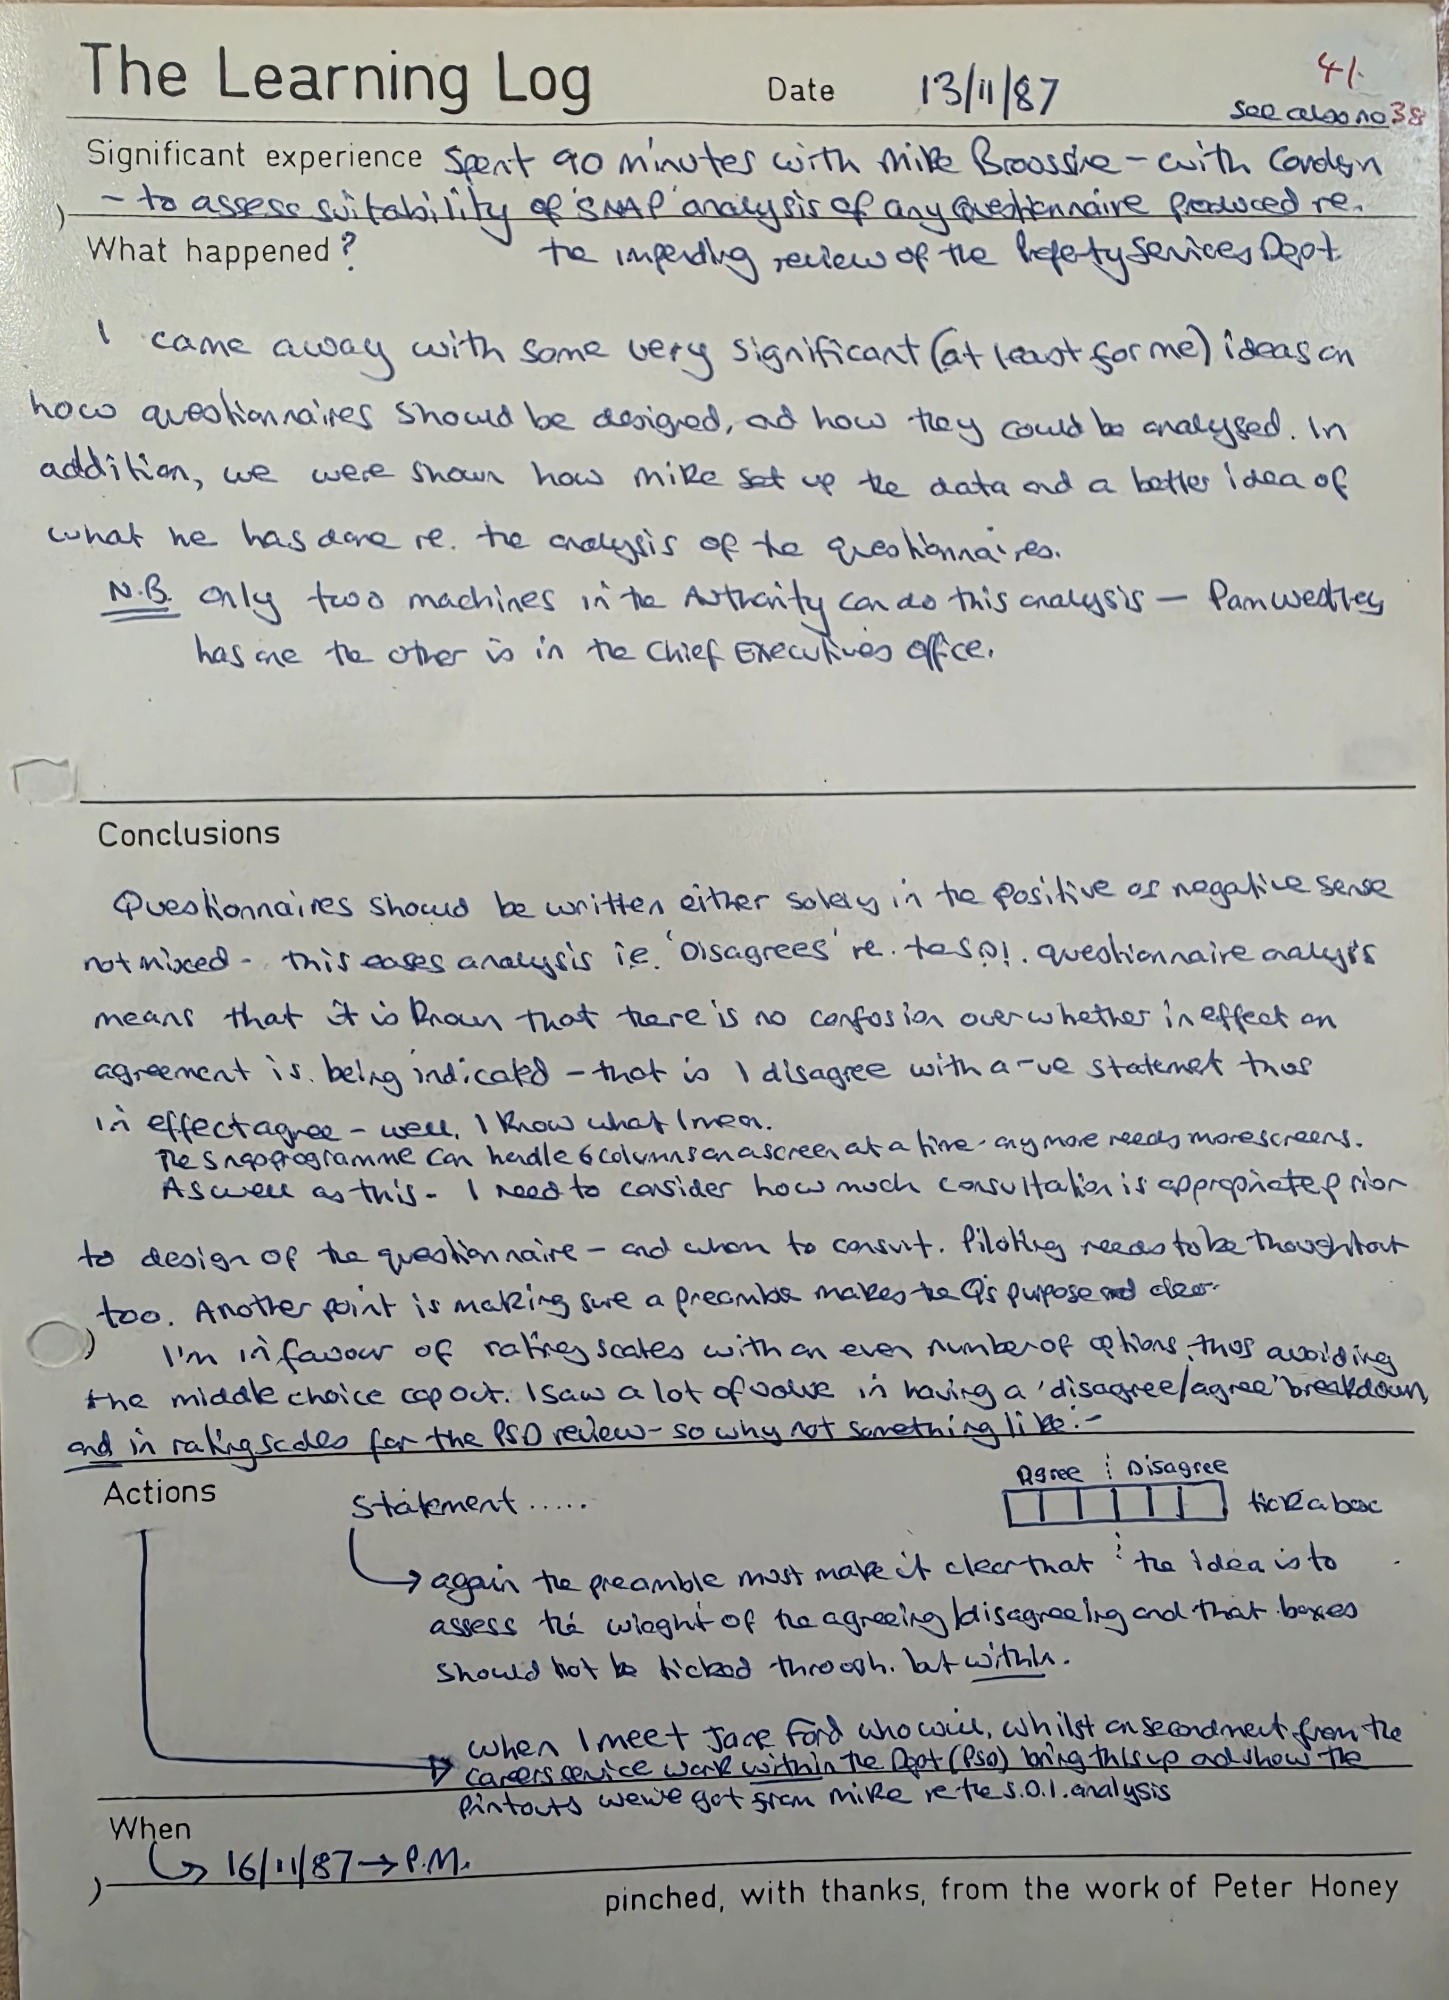 The Learning Log
Date 13/11/87
41.
see also no 38
Significant experience Spent 90 minutes with Mike - with Carolyn
- to assess suitability of 'SNAP' analysis of any questionnaire produced re.
What happened? the impending review of the Property Services Dept.
I came away with some very significant (at least for me) ideas on
how questionnaires should be designed, and how they could be analysed. In
addition, we were shown how Mike set up the data and a better idea of
what he has done re. the analysis of the questionnaires.
N.B. only two machines in the Authority can do this analysis - Pam Wedley
has one the other is in the Chief Executives office.
Conclusions
Questionnaires should be written either solely in the positive or negative sense
not mixed - this eases analysis i.e. 'Disagrees' re. the S.O.I. questionnaire analysis
means that it is known that there is no confusion over whether in effect an
agreement is being indicated - that is I disagree with a -ve statement thus
in effect agree - well, I know what I mean.
The Snap programme can handle 6 columns on a screen at a time - any more needs more screens.
As well as this - I need to consider how much consultation is appropriate prior
to design of the questionnaire - and whom to consult. Piloting needs to be thought out
too. Another point is making sure a preamble makes the Q's purpose clear
I'm in favour of rating scales with an even number of options, thus avoiding
the middle choice cop out. I saw a lot of value in having a 'disagree/agree' breakdown,
and in rating scales for the PSD review - so why not something like :-
Actions
Agree Disagree
Statement ..... tick a box
again the preamble must make it clear that the idea is to
assess the wieght of the agreeing/disagreeing and that boxes
should not be ticked through. but within.
when I meet Jane Ford who will, whilst on secondment from the
careers service work within the Dept (PSD) bring this up and show the
printouts we've got from Mike re the S.O.I. analysis
When
16/11/87 → P.M.
pinched, with thanks, from the work of Peter Honey